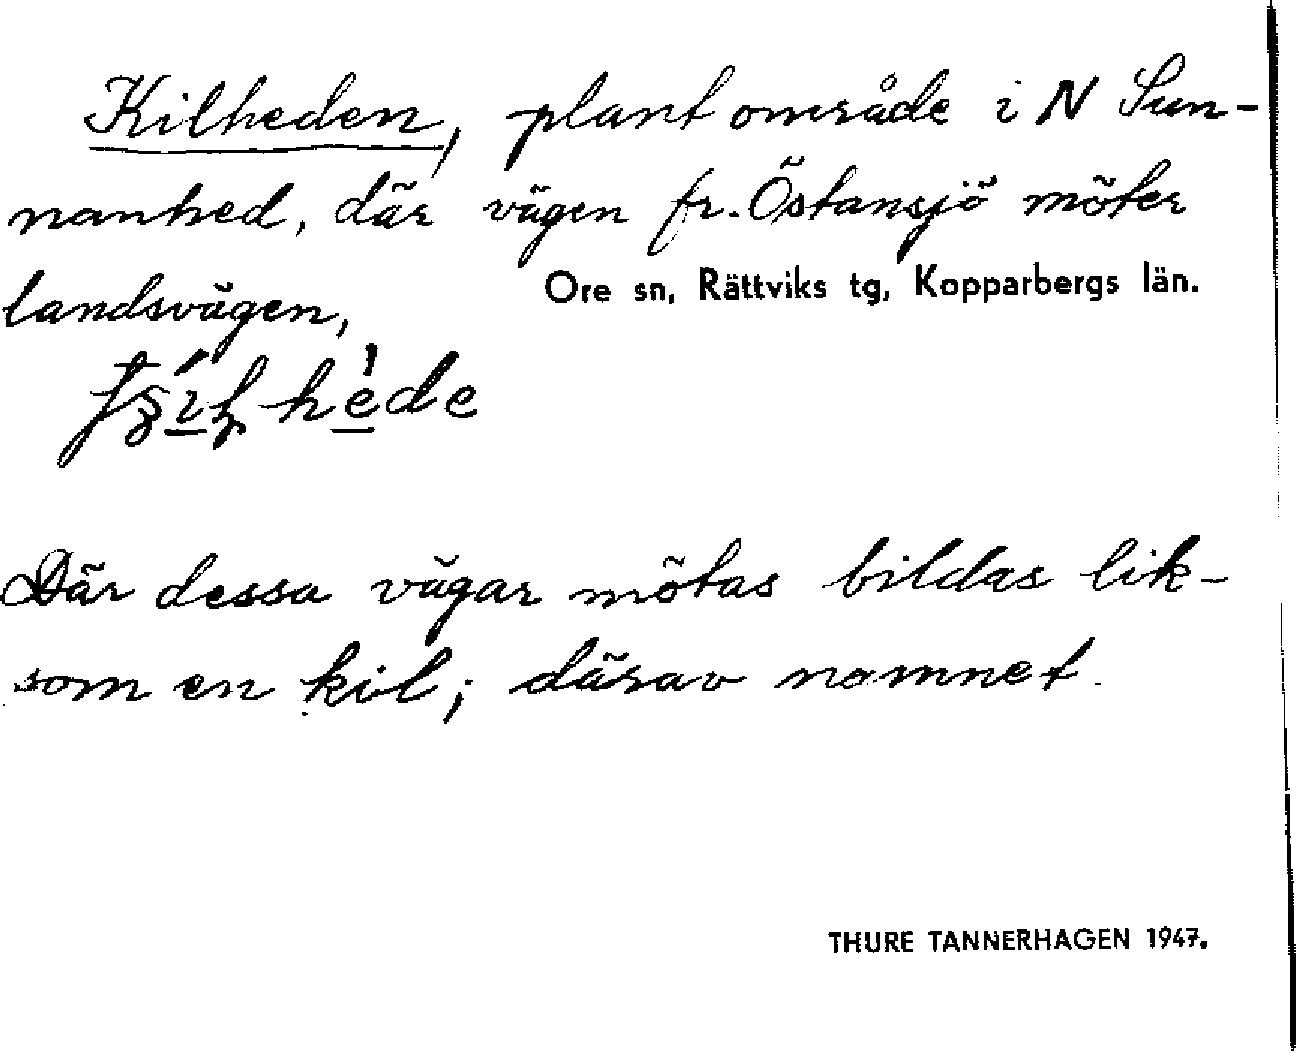 Kilheden, plant område i N Sun-
nanhed, där vägen fr. Östansjö möter
landsvägen,
Ore sn, Rättviks tg, Kopparbergs län.
Där dessa vägar mötas bildas lik-
som en kil; därav namnet.
THURE TANNERHAGEN 1947.